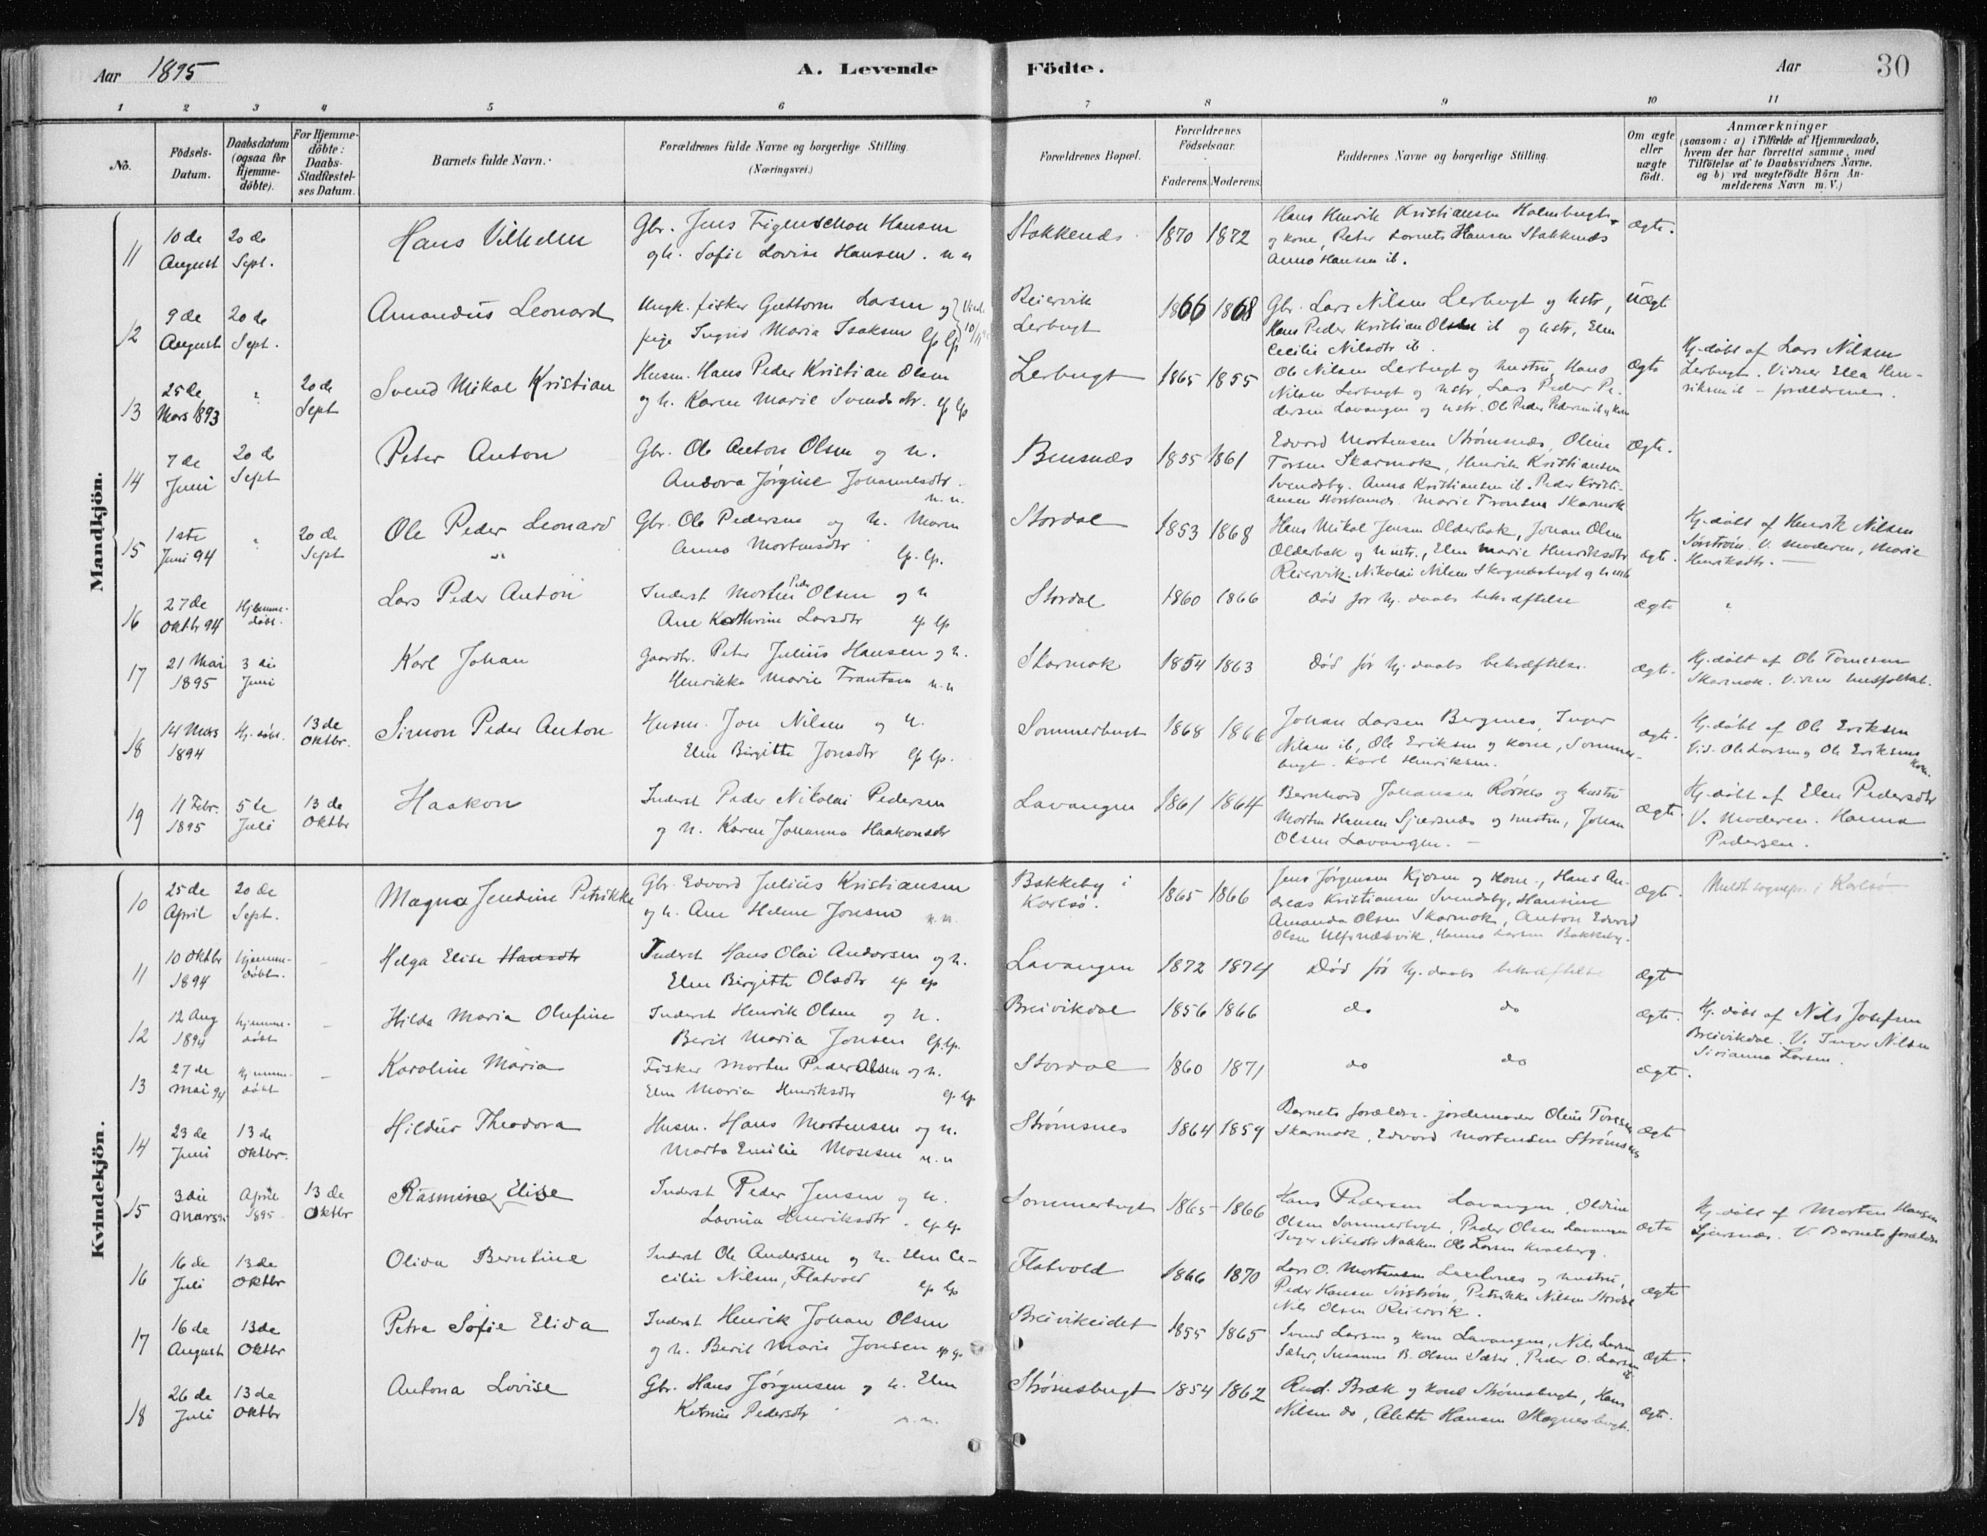 Aar 1895
A. Levende Födte.
Aar
30
1 2 3 4 5 6 7 8 9 10 11
No.
Födsels-Datum.
Daabsdatum (ogsaa for Hjemme-döbte).
For Hjemme-döbte: Daabs-Stadfæstelses Datum.
Barnets fulde Navn.
Forældrenes fulde Navne og borgerlige Stilling (Næringsvei.)
Forældrenes Bopæl.
Forældrenes Födselsaar.
Faderens. Moderens.
Faddernes Navne og borgerlige Stilling.
Om ægte eller uægte født.
Anmærkninger
(saasom: a) i Tilfælde af Hjemmedaab, hvem der har forrettet samme, med Tilföielse af to Daabsvidners Navne, og b) ved uægtefödte Börn Anmelderens Navn m. V.)
Mandkjön.
11 10de August 20de Sept. Hans Vilhelm
Gbr. Jens Figenschou Hansen
og h. Sofie Lovise Hansen. n n
Stakkenæs 1870 1872
Hans Henrik Kristiansen Holmbugt
og kone, Peter Hansen Stakkenæs
Anna Hansen ib.
ægte.
12 9de August 20de Sept. Amandus Leonard
Ungk. fisker Guttorm Larsen og
pige Ingrid Maria Isaksen lp lp
Reiervik
Lerbugt
1866 1868
Gbr. Lars Nilsen Lerbugt og hstr,
Hans Peder Kristian Olsen ib og hstr, Elen
Cecilie Nilsdtr ib.
Uægte
13 25de Mars 1893 " 20de Sept Svend Mikal Kristian
Husm. Hans Peder Kristian Olsen
og h. Karen Marie Svendsdtr. lp lp
Lerbugt 1865 1855
Ole Nilsen Lerbugt og hustru, Hans
Nilsen Lerbugt og hstr, Lars Peder Pe-
dersen Lavangen og hstr. Ole Peder Pedersen ib og kone
Ægte
Hj.døbt af Lars Nilsen
Lerbugt. Vidner Ella Hen-
riksen ib - forældrene.
14 7de Juni 20de Sept Peter Anton
Gbr. Ole Anton Olsen og h.
Andora Jørgine Johannesdtr.
n.n.
Bensnæs 1855 1861
Edvard Mortensen Strømsnæs, Oline
Torsen Skarmok, Henrik Kristiansen
Svendsby. Anna Kristiansen ib. Peder Kristi-
ansen. Marie Fransen Skarmok
Ægte.
15 1ste Juni 94 " 20de Sept Ole Peder Leonard
Gbr. Ole Pedersen og h. Maren
Anna Mortensdtr lp. lp.
Stordal 1853 1868
Hans Mikal Jensen Olderbak, Johan Olsen
Olderbak og hustr., Elen Marie Henriksdtr
Reiervik. Nikolai Nilsen Skognæsbugt og hustr
ægte.
Hj.døbt af Henrik Nilsen
Sørstrøm. V. Moderen, Marie
Henriksdtr. -
16 27de Oktbr 94 Hjemme-døbt. Lars Peder Anton
Inderst Morten Peder Olsen og h
Ane Kathrine Larsdtr lp lp
Stordal 1860 1866
Død før hj.daabs bekræftelse
ægte "
17 21 Mai 1895 3die Juni Karl Johan
Gaardbr. Peter Julius Hansen og h.
Henrikke Marie Frantsen n.n
Skarmok 1854 1863
Død før hj.daabs bekræftelse.
ægte.
Hj.døbt af Ole Tomesen
Skarmok.
18 14 Mars 1894 Hj.døbt. 13de Oktbr. Simon Peder Anton
Husm. Jon Nilsen og h.
Elen Birgitte Jonsdtr lp lp.
Sommerbugt 1868 1866
Johan Larsen Bergenes, Inger
Nilsen ib, Ole Eriksen og kone, Sommer-
bugt. Karl Henriksen.
ægte.
Hj.døbt af Ole Eriksen
Vid. Ole Larsen og Ole Eriksens
Kone.
19 11 Febr. 1895 5te Juli 13de Oktbr Haakon
Inderst Peder Nikolai Pedersen
og h. Karen Johanna Haakonsdtr
Lavangen 1861 1864
Bernhard Johansen Rørnes og hustru
Morten Hansen Sjursnæs og hustru, Johan
Olsen Lavangen. -
ægte.
Hj.døbt af Elen Pedersdtr
V. Moderen. Hanna
Pedersen.
Kvindekjön.
10 25de April 20de Sept. Magna Jendine Petrikke
Gbr. Edvard Julius Kristiansen
og h. Ane Helene Jensen n.n.
Bakkeby i
Karlsø.
1865 1866
Jens Jørgensen Kjosen og kone., Hans An-
dreas Kristiansen Svendsby, Hansine
Amanda Olsen Skarmok, Anton Edvard
Olsen Ulfsnæsvik, Hanna Larsen Bakkeby.
ægte.
Meldt sognepr. i Karlsø
11 10 Oktbr 1894 Hjemme-døbt. - Helga Elise Hansdtr
Inderst Hans Olai Andersen og h.
Elen Birgitte Olsdtr lp lp
Lavangen 1872 1874
Død før hj.daabs bekræftelse
ægte
12 12 Aug 1894 hjemme-døbt - Hilda Maria Olufine
Inderst Henrik Olsen og h.
Berit Maria Jonsen lp.lp.
Breivikdal 1856 1866
do do
ægte.
Hj.døbt af Nils Josefsen
Breivikdal. V. Inger Nilsen
Sirianna Larsen.
13 27de Mai 94 Hjemme-døbt - Karoline Maria
Fisker Morten Peder Olsen og h.
Elen Maria Henriksdtr lp lp
Stordal 1860 1871
do do
ægte.
14 23de Juni 13de Oktbr. Hildur Theodora
Husm. Hans Mortensen og h.
Marta Emilie Mosesen n.n
Strømsnes 1864 1859
Barnets forældre. jordemoder Oline Torsen
Skarmok, Edvard Mortensen Strømsnes
ægte
15 3die Mars April 1895 13de Oktbr Rasmine Elise
Inderst Peder Jensen og h.
Lavina Henriksdtr. lp lp.
Sommerbugt 1865 1866
Hans Pedersen Lavangen, Oldine
Olsen Sommerbugt, Peder Olsen Lavangen
Inger Nilsdtr Nakken Ole Larsen Kvalberg.
ægte
Hj.døbt af Morten Hansen
Sjursnæs. V. Barnets forældre
16 16de Juli 13de Oktbr Oliva Berntine
Inderst Ole Andersen og h. Elen Ce-
cilie Nilsen, Flatvold lp lp
Flatvold 1866 1870
Lars O. Mortensen og hustru,
Peder Hansen Sørstrøm, Petrikke Nilsen Stordal
Nils Olsen Reiervik.
ægte
17 16de August 13de Oktbr Petra Sofie Elida
Inderst Henrik Johan Olsen
og h. Berit Maria Jonsen lp lp
Breivikeidet 1855 1865
Svend Larsen og kone Lavangen, Nils Larsen
Sæter, Susanne B. Olsen Sæter, Peder O. Larsen
ib
ægte.
18 26de Juli 13de Oktbr Antona Lovise
Gbr. Hans Jørgensen og h. Elen
Katrine Pedersdtr n.n.
Strømsbugt 1854 1862
Rud. Bræk og kone Strømsbugt, Hans
Nilsen do, Alette Hansen Skognesbugt.
ægte.